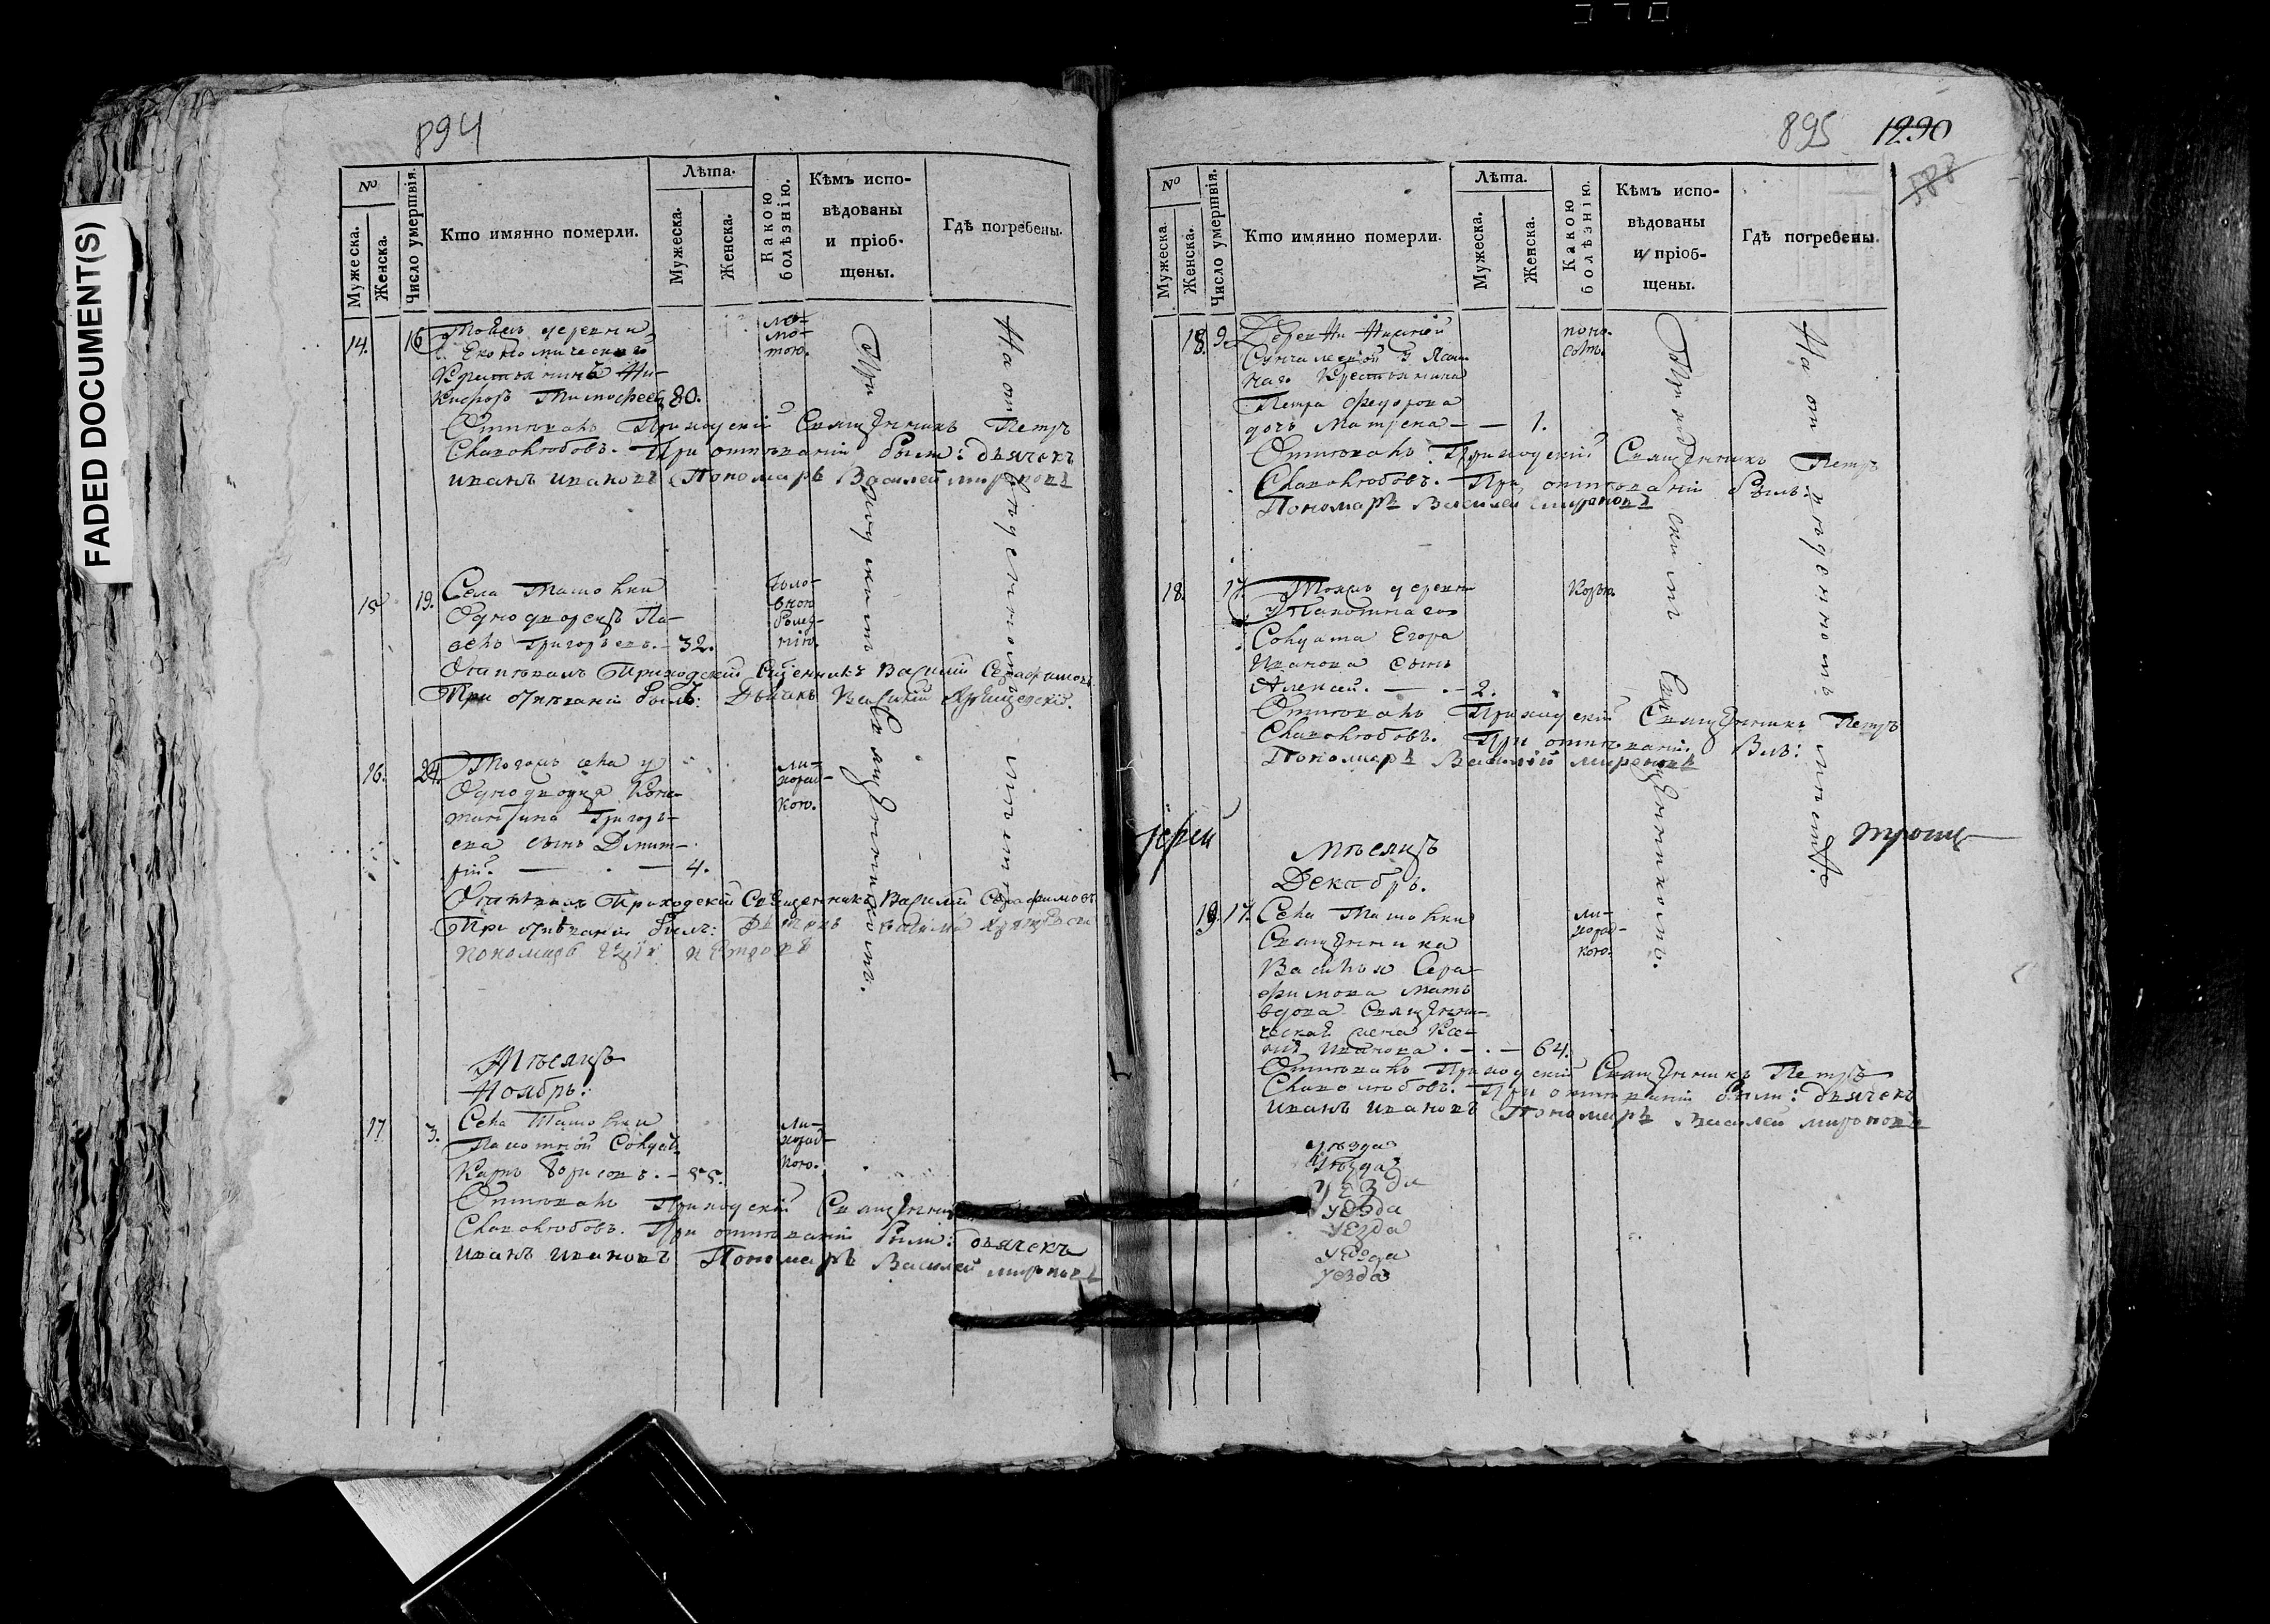 FADED DOCUMENT(S)
894
№
Мужеска.
Женска.
Число умертвія.
Кто имянно померли.
Лѣта.
Мужеска.
Женска.
Какою болѣзнію.
Кѣмъ испо-
вѣдованы
и пріоб-
щены.
Гдѣ погребены.
14. 16
деревни
Економическаго
Крестьянинъ Ни-
кифоръ Тимофеевъ 80.
Отпѣвалъ Приходскій Священникъ Петръ
Славолюбовъ. При отпѣваніи были: дьячекъ
иванъ ивановъ Пономарь Василей мироновъ
Приходскимъ Священникомъ.
На отведенномъ мѣстѣ
15 19. Села Ташовки
Однодворецъ Па-
велъ Григорьевъ. – 32.
Отпѣвалъ Приходскій Священникъ Василій Серафимовъ
При отпѣваніи былъ: Дьячекъ Василій
16. 24. Тогожъ села
Однодворца Конс-
тантина Григорь-
ева сынъ Дмит-
рій. — . — 4.
ли-
хорад-
кою.
Отпѣвалъ Приходскій Священникъ Василій Серафимовъ
При отпѣваніи былъ: Дьячекъ
пономарь Петровъ
Мѣсяцъ
Ноябрь:
17 3. Села Ташовки
Пахотной Солдатъ
Карпъ Борисовъ. – 55.
ли-
хорад-
кою.
Отпѣвалъ Приходскій Священникъ
Славолюбовъ. При отпѣваніи были: дьячекъ
иванъ ивановъ Пономарь Василей мироновъ
895 1290
588
№
Мужеска.
Женска.
Число умертвія.
Кто имянно померли.
Лѣта.
Мужеска.
Женска.
Какою болѣзнію.
Кѣмъ испо-
вѣдованы
и пріоб-
щены.
Гдѣ погребены.
18. 9. Деревни Нижней
Ясаш-
наго Крестьянина
Петра Федорова
дочь Матрена – — 1.
поно-
сомъ.
Отпѣвалъ Приходскій Священникъ Петръ
Славолюбовъ. При отпѣваніи былъ:
Пономарь Василей мироновъ
Приходскимъ Священникомъ.
На отведенномъ мѣстѣ
18. 17. Тояжъ деревни
Пахотнаго
Солдата Егора
Иванова сынъ
Алексей. — . – 2.
Корью.
Отпѣвалъ Приходскій Священникъ Петръ
Славолюбовъ. При отпѣваніи Былъ:
Пономарь Василій мироновъ
Іерей
Мѣсяцъ
Декабрь.
19. 17. Села Ташовки
Священника
Василья Сера-
фимова мать
вдова Священни-
ческая жена
Иванова. – . — 64.
ли-
хорад-
кою.
Отпѣвалъ Приходскій Священникъ Петръ
Славолюбовъ. При отпѣваніи были: дьячекъ
иванъ ивановъ Пономарь Василей мироновъ
уѣзда
уѣзда
уезда
уезда
уезда
уезда
уезда